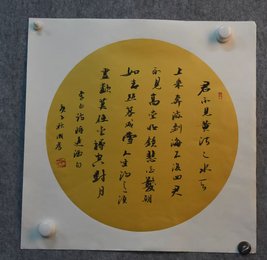 君不见黄河之水天
上来奔流到海不复回君
不见高堂明镜悲白发朝
如青丝暮成雪人生得意须
尽欢莫使金樽空对月
李白诗将进酒句
庚子秋